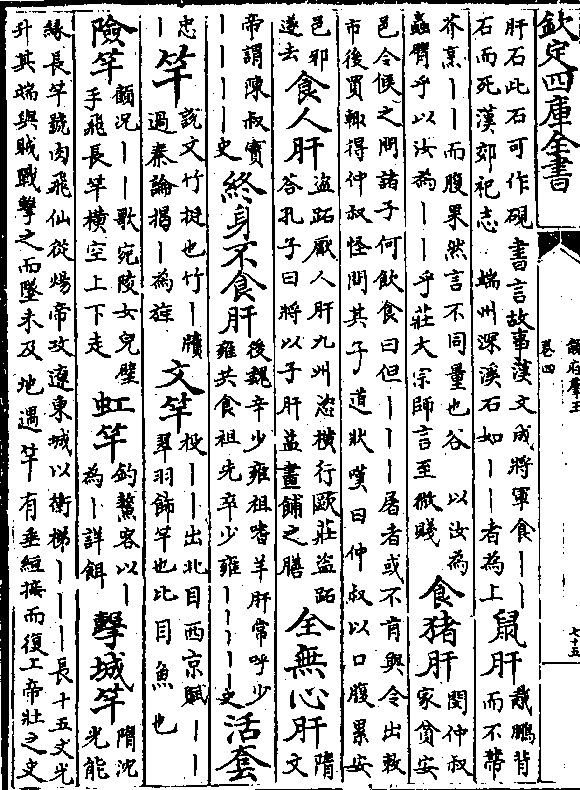 欽定四庫全書
韻府羣玉
卷四
七十五
肝石此石可作硯 書言故事漢文成將軍食｜｜
石而死漢郊祀志 端州深溪石如｜｜者為上
鼠肝
裁鵬背
而不幣
芥烹｜｜而腹果然言不同量也谷 以汝為
蟲臂乎以汝為｜｜乎莊大宗師言至微賤
食猪肝
閔仲叔
家貧安
邑令候之問諸子何飲食曰但｜｜｜屠者或不肯與令出敕
市後買輙得仲叔怪問其子道狀嘆曰仲叔以口腹累安
邑邪
遂去
食人肝
盜跖厭人肝九州恣橫行歐莊盜跖
荅孔子曰將以子肝益晝餔之膳
全無心肝
隋
文
帝謂陳叔寳
｜｜｜｜史
終身不食肝
後魏辛少雍祖嗜羊肝常呼少
雍共食祖先卒少雍｜｜｜｜｜史
活套
忠｜
｜
竿
說文竹挺也竹｜牘
過秦論揭｜為旌
文竿
投｜｜出北目西京賦｜｜
翠羽飾竿也比目魚也
險竿
顧況｜｜歌宛陵女兒擘
手飛長竿橫空上下走
虹竿
釣鰲客以｜
為｜詳餌
擊城竿
隋沈
光能
緣長竿號肉飛仙從煬帝攻遼東城以衝梯｜｜｜長十五丈光
升其端與賊戰擊之而墜未及地遇竿有垂絙接而復上帝壯之史